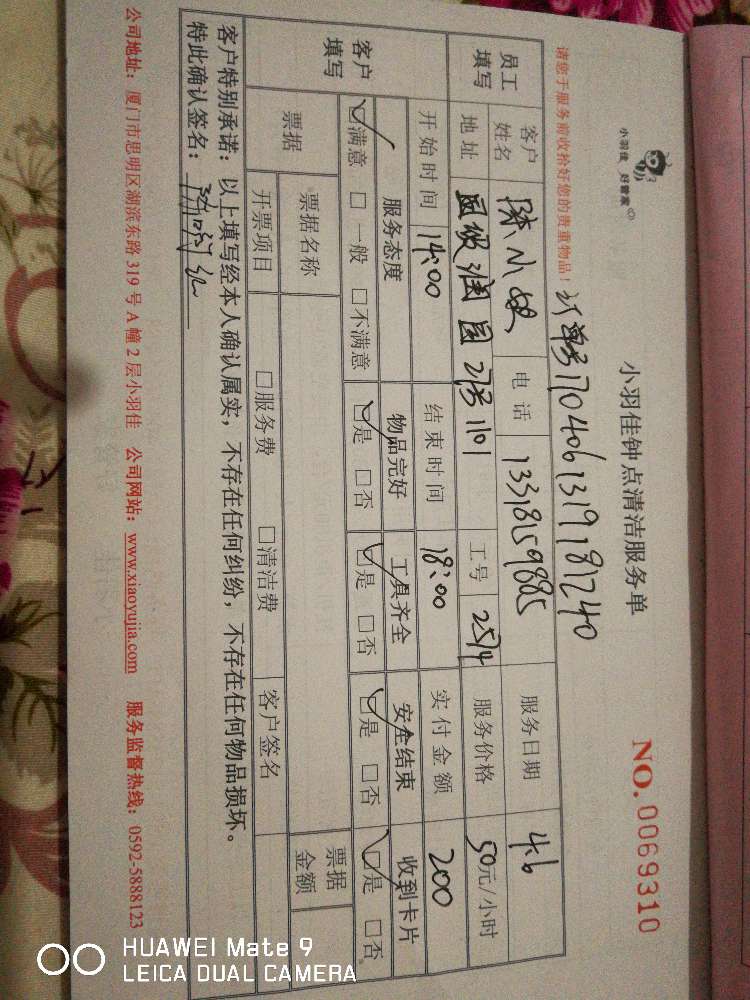 小羽佳 好管家
小羽佳钟点清洁服务单
NO. 0069310
请您于服务前收拾好您的贵重物品!
订单号1704061319181240
员工填写 客户姓名 陈小姐 电话 13318159885 服务日期 4.6
地址 国贸润园27号1101 工号 2514 服务价格 50元/小时
客户填写 开始时间 14:00 结束时间 18:00 实付金额 200
服务态度 物品完好 工具齐全 安全结束 收到卡片
☑满意 □一般 □不满意 ☑是 □否 ☑是 □否 ☑是 □否 ☑是 □否。
票据 票据名称 票据金额
开票项目 □服务费 □清洁费 客户签名
客户特别承诺:以上填写经本人确认属实,不存在任何纠纷,不存在任何物品损坏。
特此确认签名:
公司地址:厦门市思明区湖滨东路319号A幢2层小羽佳 公司网站:www.xiaoyujia.com 服务监督热线:0592-5888123
HUAWEI Mate 9
LEICA DUAL CAMERA